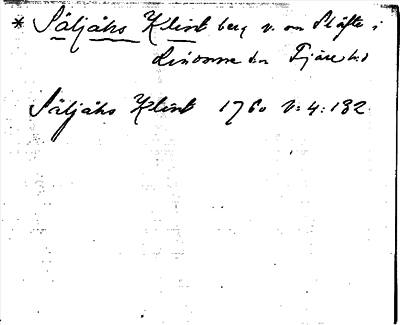 * Säljåhs Klint berg v. om Slåfte i
Lindome sn Fjäre hd
Säljåhs Klint 1760 V:4:182